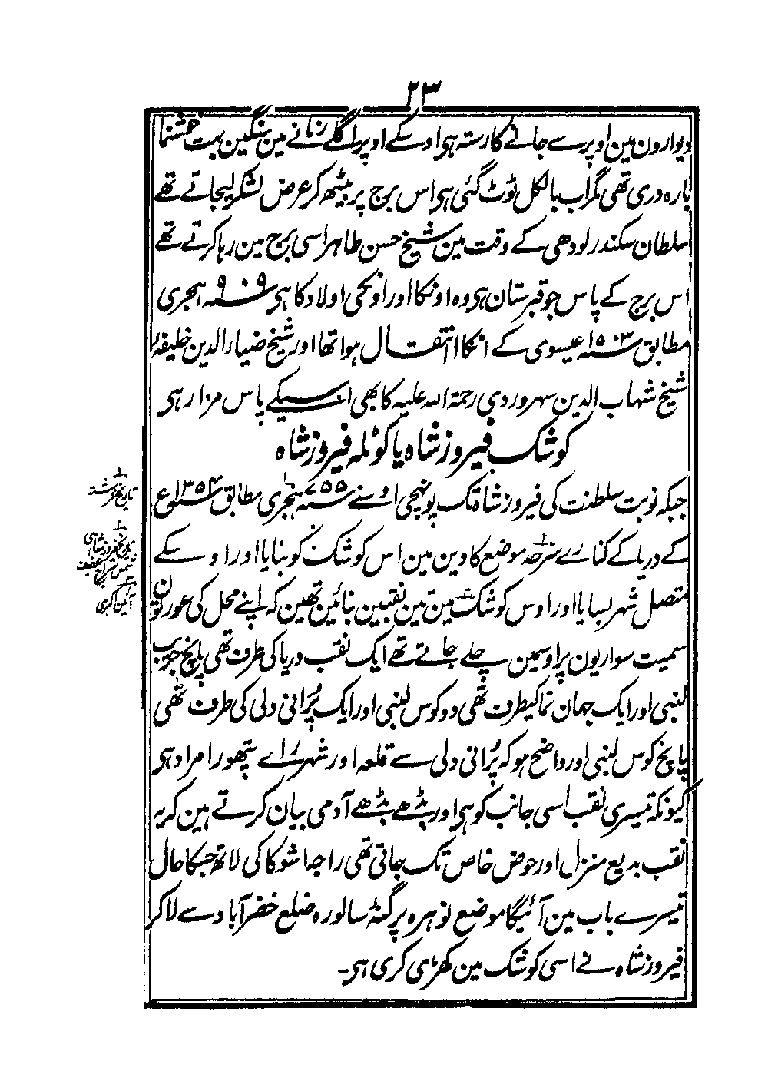 ۲۳
دیوارون مین اوپر سے جانے کا رستہ ہی اوسکے اوپر اگلے زمانے مین سنگین بہت خوشنما
بارہ دری تھی مگر اب بالکل ٹوٹ گئی ہی اس برج پر بیٹھ کر عرض لشکر لیجاتے تھے
سلطان سکندر لودھی کے وقت مین شیخ حسن طاہر اسی برج مین رہا کرتے تھے
اس برج کے پاس جو قبرستان ہی وہ اونکا اور اونکی اولاد کا ہی سنہ ۹۰۹ ہجری
مطابق سنہ ۱۵۰۳ عیسوی کے انکا انتقال ہوا تھا اور شیخ ضیار الدین خلیفہ
شیخ شہاب الدین سہروردی رحمۃ اللہ علیہ کا بھی اسیکے پاس مزار ہی
کوشک فیروز شاہ یا کوٹلہ فیروز شاہ
جبکہ نوبت سلطنت کی فیروز شاہ تک پونہچی اوسنے سنہ ۷۵۵ ہجری مطابق سنہ ۱۳۵۴ع
تاریخ فرشتہ
کے دریا کے کنارے سرحد موضع کادین مین اس کوشک کو بنایا اور اوسکے
تاریخ فیروز شاہی شمس سراج عفیف
متصل شہر بسایا اور اوس کوشک مین تین نقبین بنائین تھین کہ اپنے محل کی عورتون
آئین اکبری
سمیت سواریون پر اوسمین چلے جاتے تھے ایک نقب دریا کی طرف تھی پانچ جریب
لنبی اور ایک جہان نما کیطرف تھی دو کوس لنبی اور ایک پُرانی دلی کی طرف تھی
پانچ کوس لنبی اور واضح ہو کہ پُرانی دلی سے قلعہ اور شہر راے پتھورا مراد ہی
کیونکہ تیسری نقب اسی جانب کو ہی اور بڈھے بڈھے آدمی بیان کرتے ہین کہ یہ
نقب بدیع منزل اور حوض خاص تک جاتی تھی راجا شوکا کی لاٹھ جسکا حال
تیسرے باب مین آئیگا موضع نوہرہ پرگنہ سالورہ ضلع خضرآباد سے لا کر
فیروز شاہ نے اسی کوشک مین کھڑی کری ہی۔